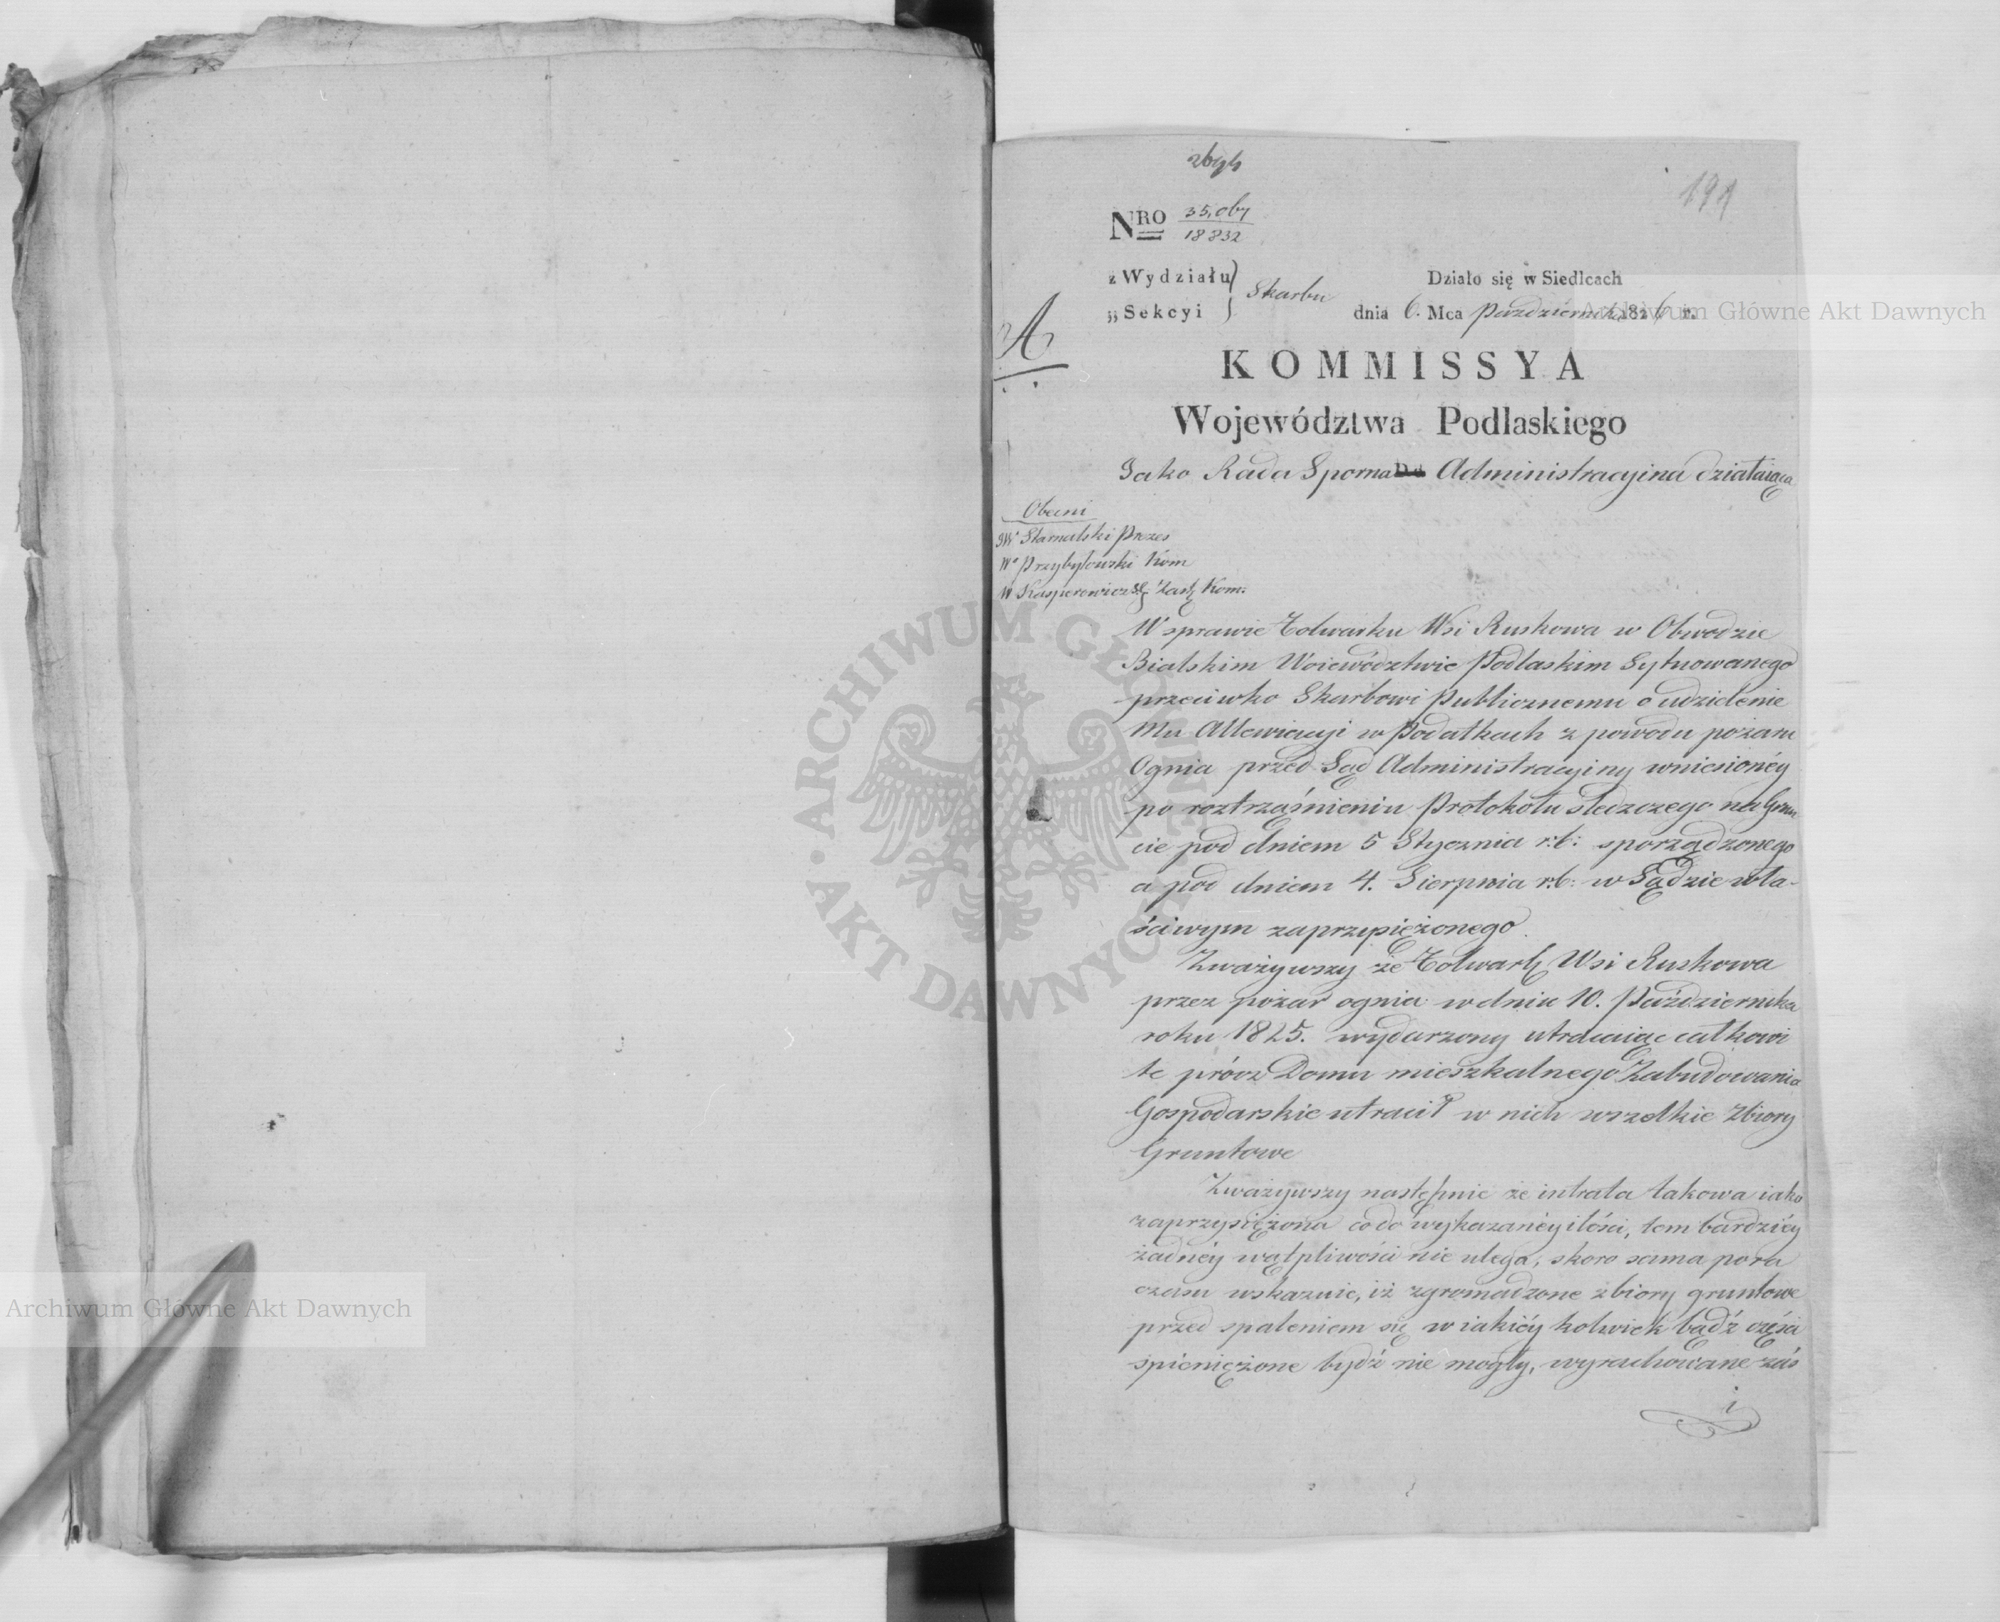 194
NRO 35,067
18832
z Wydziału
„Sekcyi
Skarbu
Działo się w Siedlcach
dnia 6. Mca Października 1826 r.
A
KOMMISSYA
Województwa Podlaskiego
Jako Rada Sporna Administracyjna działaiąca
Obecni
JW Prezes
Wo Przybyłowski Kom
W Kasperowicz Zast Kom:
W sprawie Folwarku Wsi Ruskowa w Obwodzie
Bialskim Woiewództwie Podlaskim Sytuowanego
przeciwko Skarbowi Publicznemu o udzielenie
Mu Allewiacyi w Podatkach z powodu pożaru
Ognia przed Sąd Administracyiny wniesionéy
po roztrząśnieniu Protokołu śledczego na Grun
cie pod dniem 5 Stycznia r:b: sporządzonego
a pod dniem 4. Sierpnia r:b: w Sądzie wła-
ściwym zaprzysiężonego.
Zważywszy że Folwark Wsi Ruskowa
przez pożar ognia w dniu 10. Października
roku 1825. wydarzony utracaiąc całkowi
te prócz Domu mieszkalnego Zabudowania
Gospodarskie utracił w nich wszelkie Zbiory
Gruntowe
Zważywszy następnie że intrata takowa iako
zaprzysiężona co do wykazanéy ilości, tem bardziéy
żadnéy wątpliwości nie ulega, skoro sama pora
czasu wskazuie, iż zgromadzone zbiory gruntowe
przed spaleniem się w iakiéy kolwiek bądź części
spieniężone bydź nie mogły, wyrachowane zaś
i
Archiwum Główne Akt Dawnych
Archiwum Główne Akt Dawnych
ARCHIWUM GŁÓWNE AKT DAWNYCH